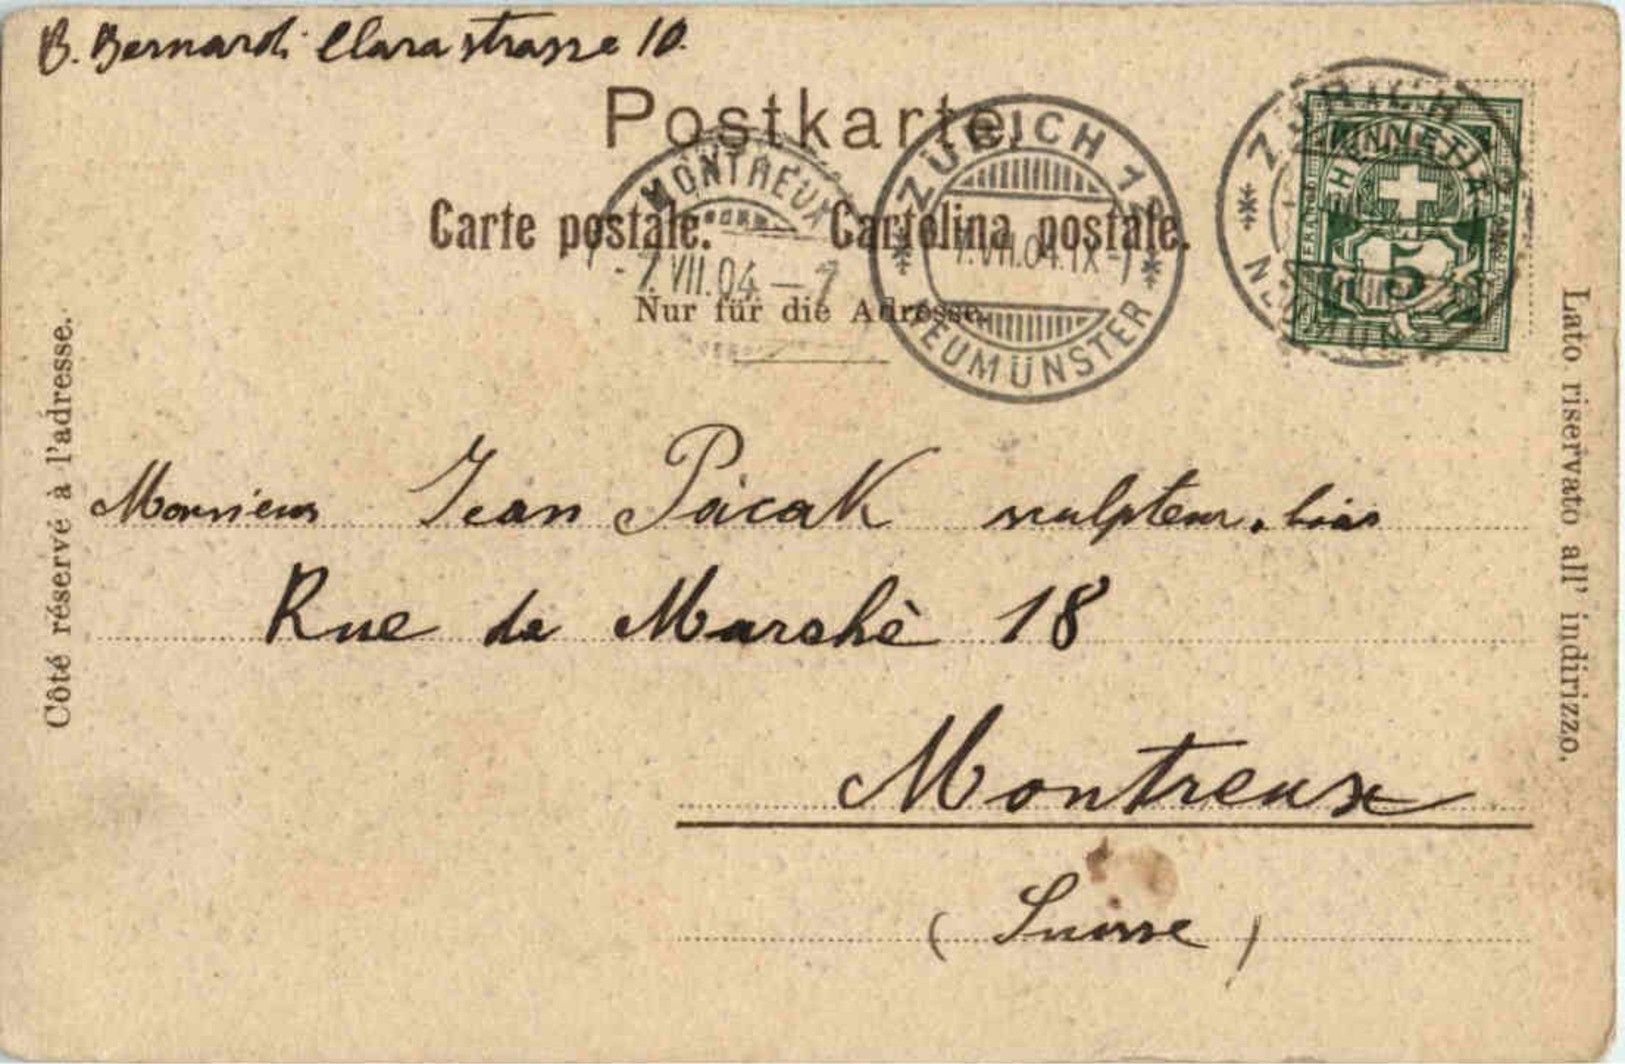 B. Bernardi Clarastrasse 10.
Postkarte
Carte postale. Cartolina postale.
Nur für die Adresse.
MONTREUX
7.VII.04 – 7
ZÜRICH 12
7.VII.04.IX-
NEUMÜNSTER
ZÜRICH
NEUMÜNS
HELVETIA
FRANCO
5
Côté réservé à l'adresse.
Lato riservato all' indirizzo.
Monsieur Jean Pácak sculpteur. bois
Rue de Marchè 18
Montreux
(Suisse)